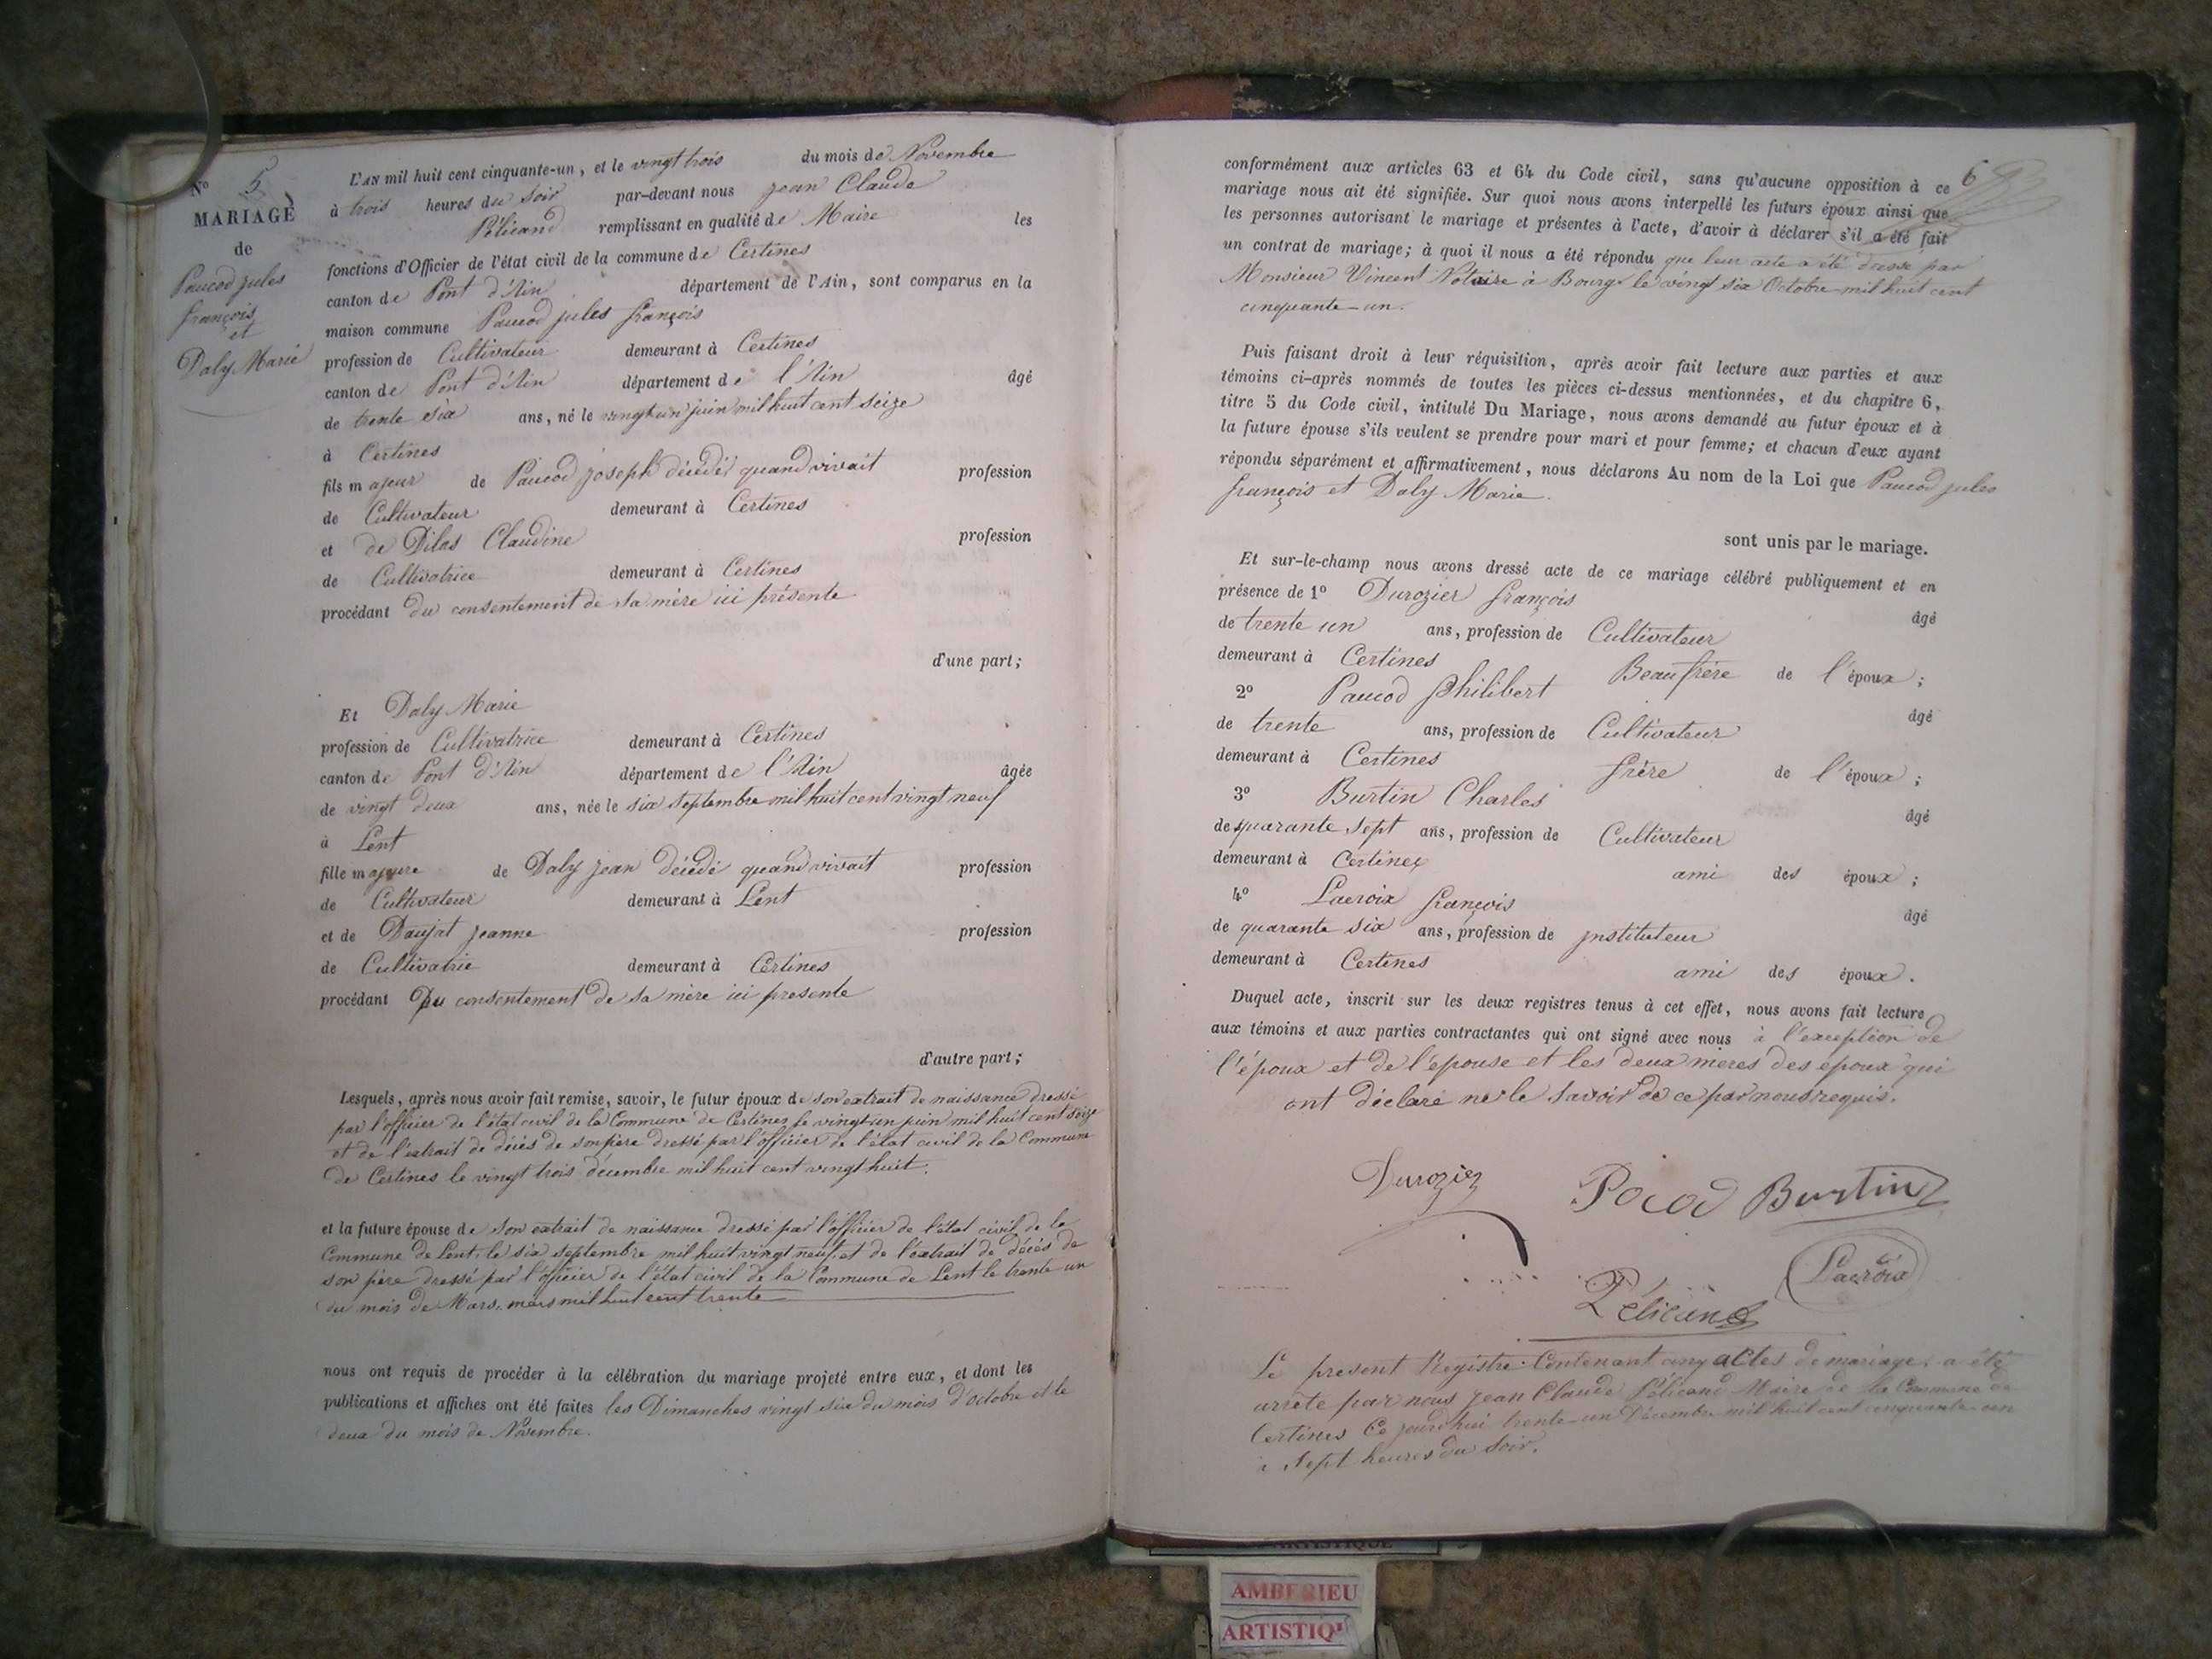 N° 5
MARIAGE
de
Paucod jules
françois
et
Daly Marie
L'AN mil huit cent cinquante-un, et le vingt trois du mois de Novembre
à trois heures du soir par-devant nous jean Claude
Pélicand remplissant en qualité de Maire les
fonctions d'Officier de l'état civil de la commune de Certines
canton de Pont d'Ain département de l'Ain, sont comparus en la
maison commune Paucod jules françois
profession de Cultivateur demeurant à Certines
canton de Pont d'Ain département de l'Ain âgé
de trente six ans, né le vingt un juin mil huit cent seize
à Certines
fils majeur de Paucod joseph décédé quand vivait profession
de Cultivateur demeurant à Certines
et de Dilas Claudine profession
de Cultivatrice demeurant à Certines
procédant du consentement de sa mère ici présente
d'une part;
Et Daly Marie
profession de Cultivatrice demeurant à Certines
canton de Pont d'Ain département de l'Ain âgée
de vingt deux ans, née le six septembre mil huit cent vingt neuf
à Lent
fille majeure de Daly jean décédé quand vivait profession
de Cultivateur demeurant à Lent
et de Daujat jeanne profession
de Cultivatrie demeurant à Certines
procédant Du consentement de sa mère ici presente
d'autre part;
Lesquels, après nous avoir fait remise, savoir, le futur époux de son extrait de naissance dressé
par l'officier de l'état civil de la Commune de Certines le vingt un juin mil huit cent seize
et de l'extrait de décès de son père dressé par l'officier de l'état civil de la Commune
de Certines le vingt trois décembre mil huit cent vingt huit.
et la future épouse de son extrait de naissance dressé par l'officier de l'état civil de la
Commune de Lent le six septembre mil huit vingt neuf, et de l'extrait de décès de
son père dressé par l'officier de l'état civil de la Commune de Lent le trente un
du mois de Mars, mars mil huit cent trente
nous ont requis de procéder à la célébration du mariage projeté entre eux, et dont les
publications et affiches ont été faites les Dimanches vingt six du mois d'octobre et le
deux du mois de Novembre.
6
conformément aux articles 63 et 64 du Code civil, sans qu'aucune opposition à ce
mariage nous ait été signifiée. Sur quoi nous avons interpellé les futurs époux ainsi que
les personnes autorisant le mariage et présentes à l'acte, d'avoir à déclarer s'il a été fait
un contrat de mariage; à quoi il nous a été répondu que leur acte a été dressé par
Monsieur Vincent Notaire à Bourg le vingt six Octobre mil huit cent
cinquante-un.
Puis faisant droit à leur réquisition, après avoir fait lecture aux parties et aux
témoins ci-après nommés de toutes les pièces ci-dessus mentionnées, et du chapitre 6,
titre 5 du Code civil, intitulé Du Mariage, nous avons demandé au futur époux et à
la future épouse s'ils veulent se prendre pour mari et pour femme; et chacun d'eux ayant
répondu séparément et affirmativement, nous déclarons Au nom de la Loi que Paucod jules
françois et Daly Marie.
sont unis par le mariage.
Et sur-le-champ nous avons dressé acte de ce mariage célébré publiquement et en
présence de 1° Durozier françois âgé
de trente un ans, profession de Cultivateur
demeurant à Certines Beau frère de l'époux;
2° Paucod Philibert âgé
de trente ans, profession de Cultivateur
demeurant à Certines frère de l'époux;
3° Burtin Charles âgé
de quarante sept ans, profession de Cultivateur
demeurant à Certines ami des époux;
4° Lacroix françois âgé
de quarante six ans, profession de jnstituteur
demeurant à Certines ami des époux.
Duquel acte, inscrit sur les deux registres tenus à cet effet, nous avons fait lecture
aux témoins et aux parties contractantes qui ont signé avec nous à l'exception de
l'époux et de l'épouse et les deux meres des epoux qui
ont déclaré ne le savoir de ce par nous requis.
Durozier Pocod Burtin
Lacroix
Pélicand
Le present Registre Contenant cinq actes de mariage, a été
arrêté par nous jean Claude Pélicand Maire de la Commune de
Certines Ce jourd'hui trente-un Décembre mil huit cent cinquante-un
à sept heures du soir.
ARTISTIQUE
AMBERIEU
ARTISTIQ